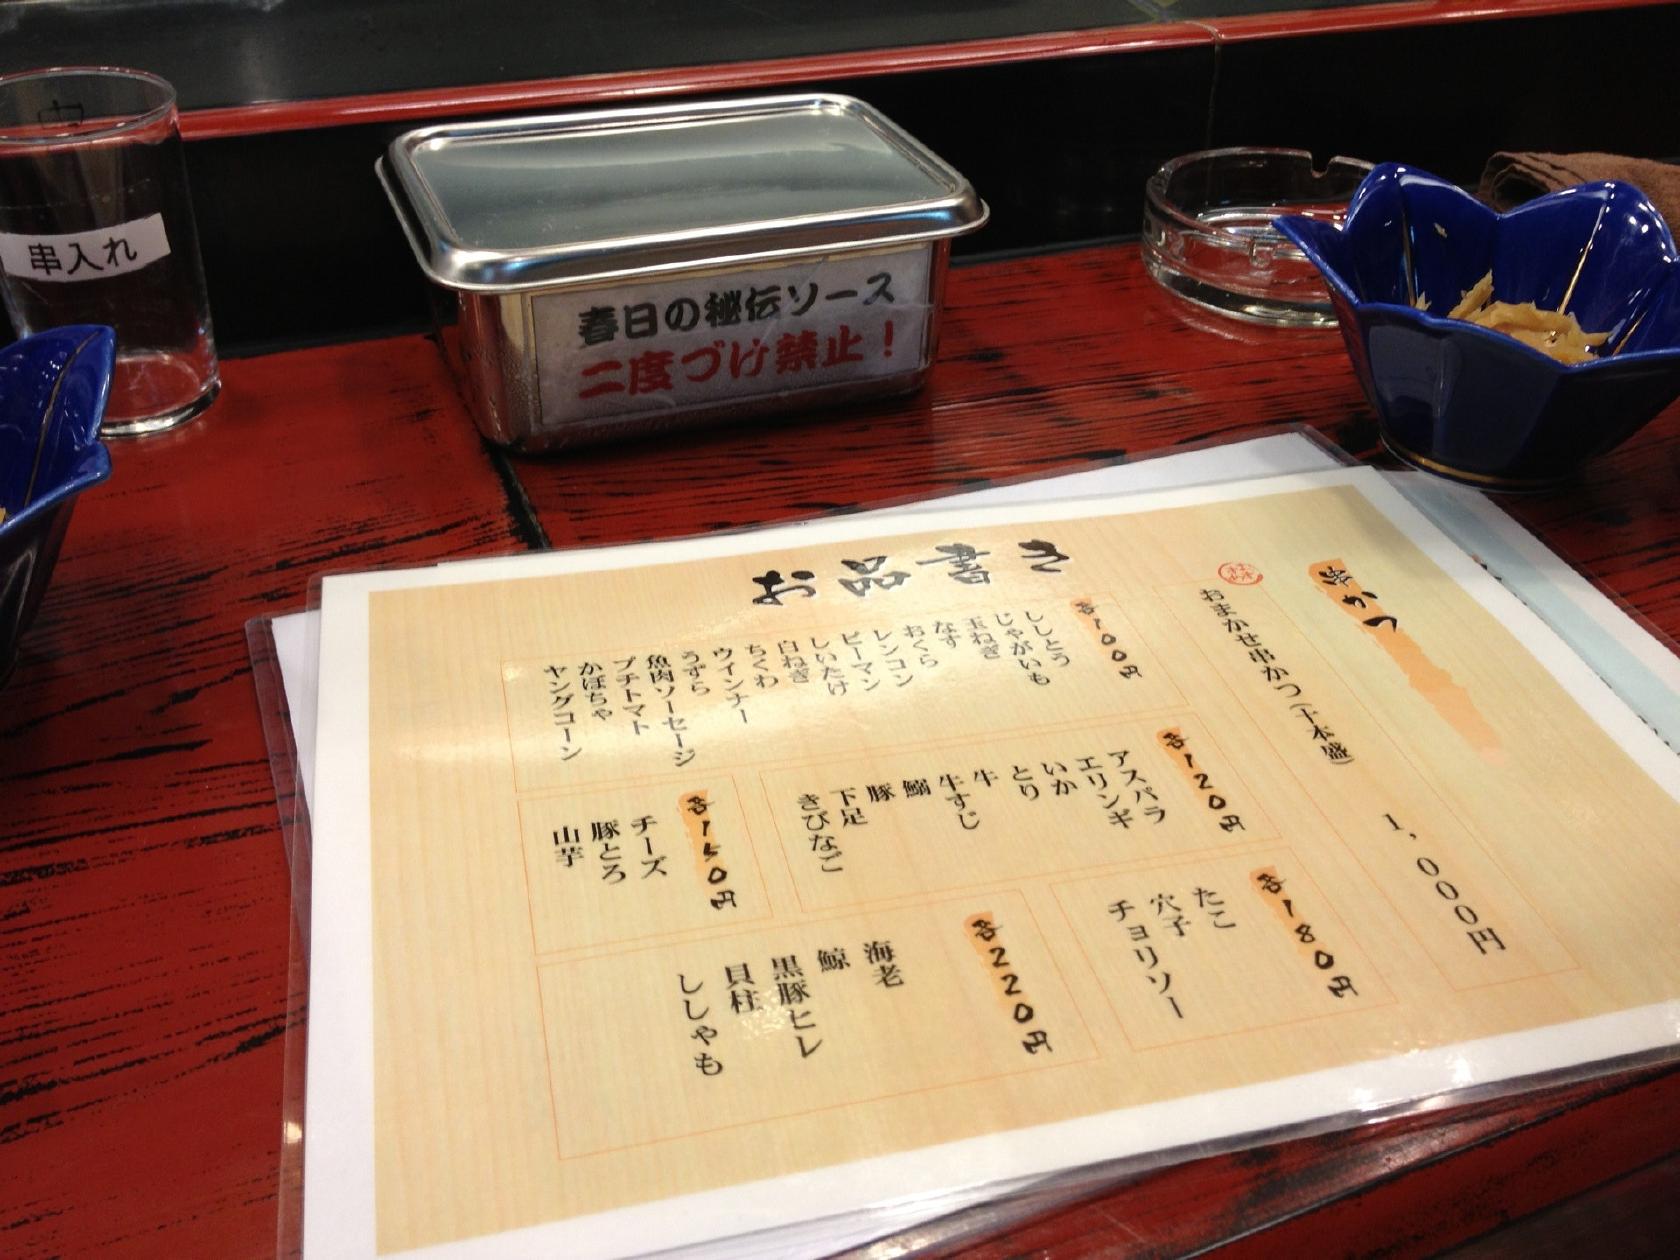 串入れ
春日の秘伝ソース
二度づけ禁止！
お品書き
串かつ
おまかせ串かつ(十本盛)
1,000円
各100円
ししとう
じゃがいも
玉ねぎ
なす
おくら
レンコン
ピーマン
しいたけ
白ねぎ
ちくわ
ウインナー
うずら
魚肉ソーセージ
プチトマト
かぼちゃ
ヤングコーン
各120円
アスパラ
エリンギ
いか
とり
牛
牛すじ
鰯
豚
下足
きびなご
各150円
チーズ
豚とろ
山芋
各180円
たこ
穴子
チョリソー
各220円
海老
鯨
黒豚ヒレ
貝柱
ししゃも